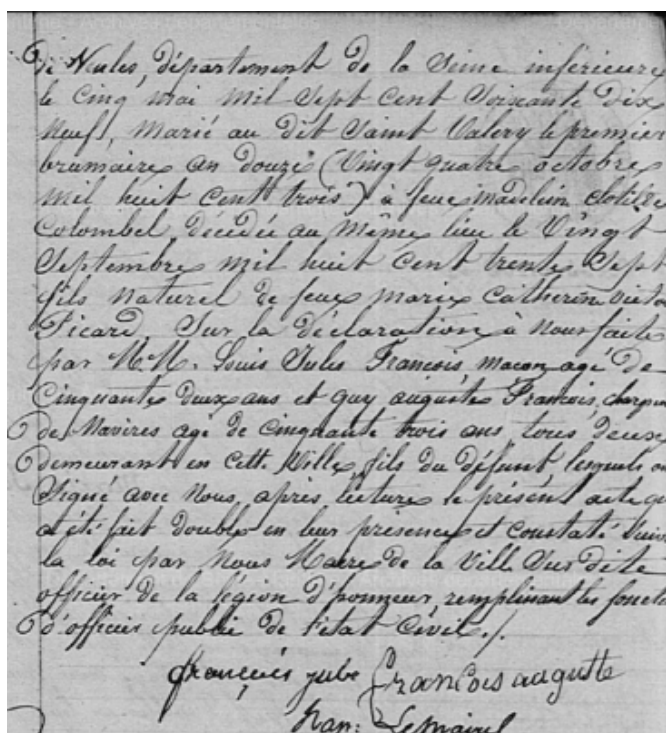 de Veules, département de la Seine inférieure
le cinq mai mil sept cent soixante dix
neuf, marié au dit Saint Valery le premier
brumaire an douze (vingt quatre octobre
mil huit cent trois) à feue madelein clotilde
Colombel, décédée au même lieu le vingt
Septembre mil huit cent trente sept
fils naturel de feue marie Catherin victo
Picard, Sur la déclaration à nous faite
par M.M. Louis Jules François, maçon, agé de
Cinquante deux ans et guy auguste François, charpen
de Navires agé de cinquante trois ans, tous deux
demeurant en cette Ville, fils du défunt, lesquels on
Signé avec Nous, après lecture le présent acte qu
a été fait double en leur presence et constaté Suiv
la loi par Nous Maire de la Ville Susdite
officier de la légion d'honneur, remplissant les foncti
d'officier public de l'état Civil ./.
françois jube françois auguste
Lemairel